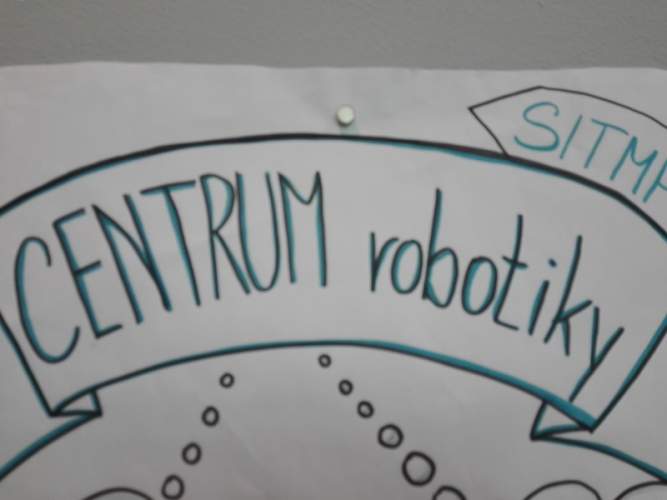 SITMP
CENTRUM robotiky